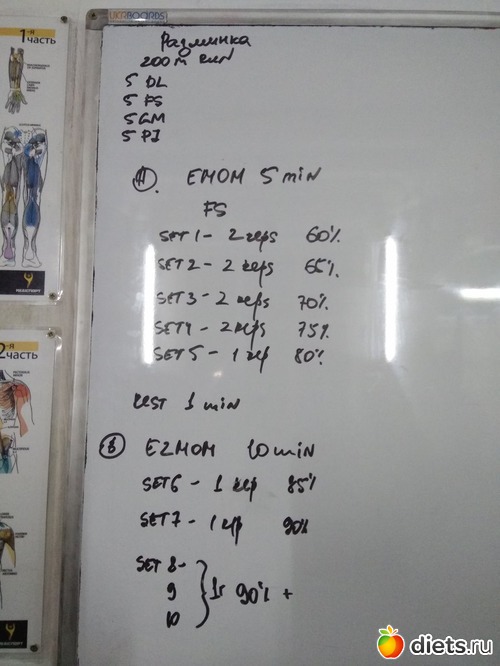 UKRBOARDS
1-я
часть
2-я
часть
Разминка
200 m run
5 DL
5 FS
5 GM
5 PJ
A. EMOM 5 min
FS
SET 1 - 2 reps 60%
SET 2 - 2 reps 65%
SET 3 - 2 reps 70%
SET 4 - 2 reps 75%
SET 5 - 1 rep 80%
rest 1 min
B E2MOM 10 min
SET 6 - 1 rep 85%
SET 7 - 1 rep 90%
SET 8 -
9 } 1r 90% +
10
diets.ru